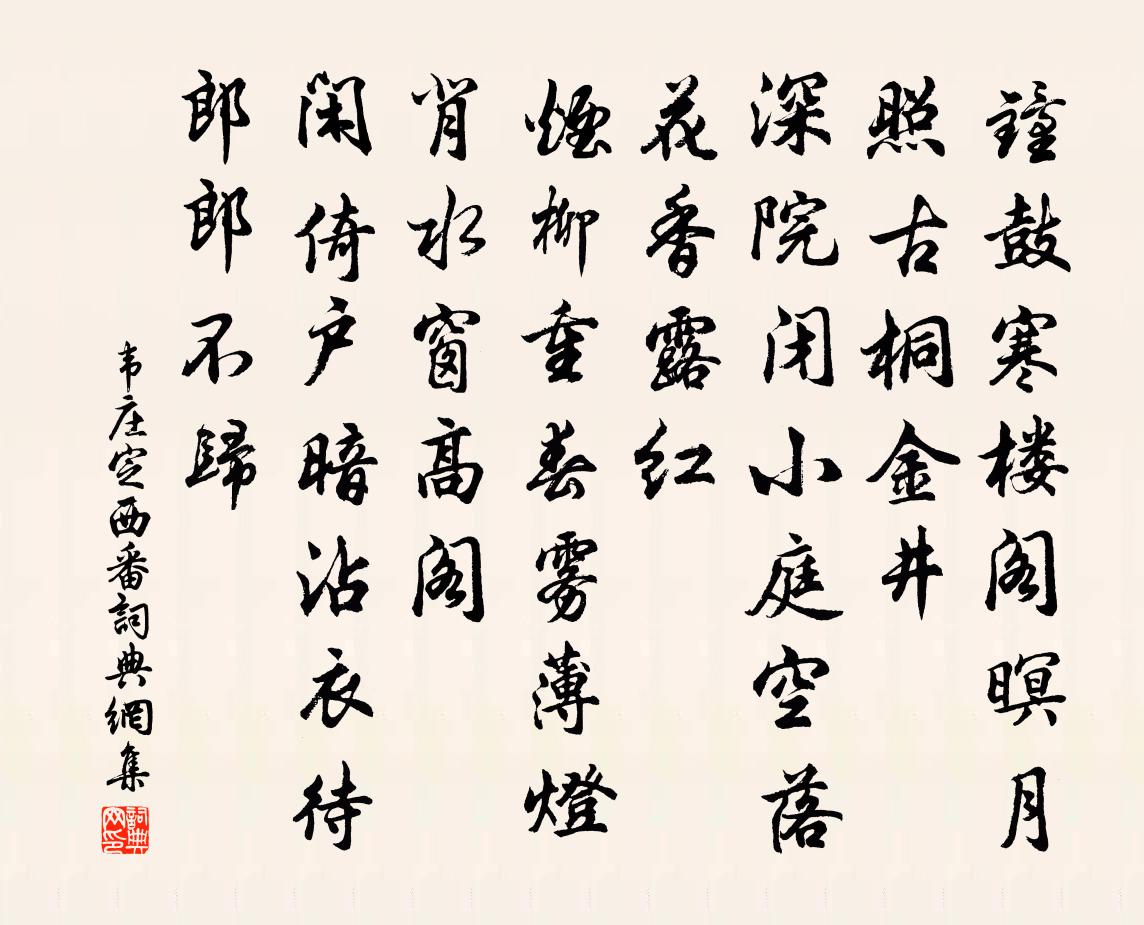 鐘鼓寒楼阁暝月
照古桐金井
深院闭小庭空落
花香露红
煙柳重春雾薄燈
背水窗高阁
闲倚户暗沾衣待
郎郎不歸
韦庄定西番詞典網集
詞典网印